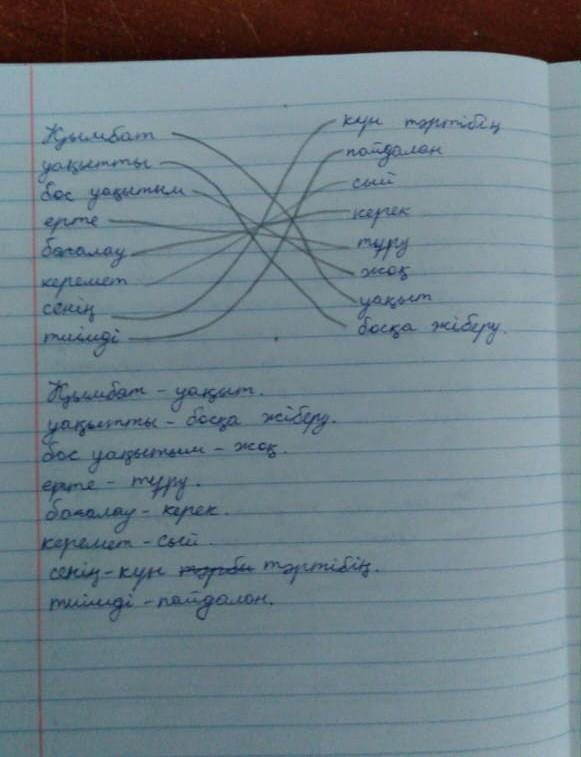 Қымбат күн тәртібің
уақытты пайдалан
бос уақытым сый
ерте керек
бағалау тұру
керемет жоқ
сенің уақыт
тиімді босқа жіберу.
Қымбат - уақыт.
уақытты - босқа жіберу.
бос уақытым - жоқ.
ерте - тұру.
бағалау - керек.
керемет - сый.
сенің - күн тәртібің.
тиімді - пайдалан.